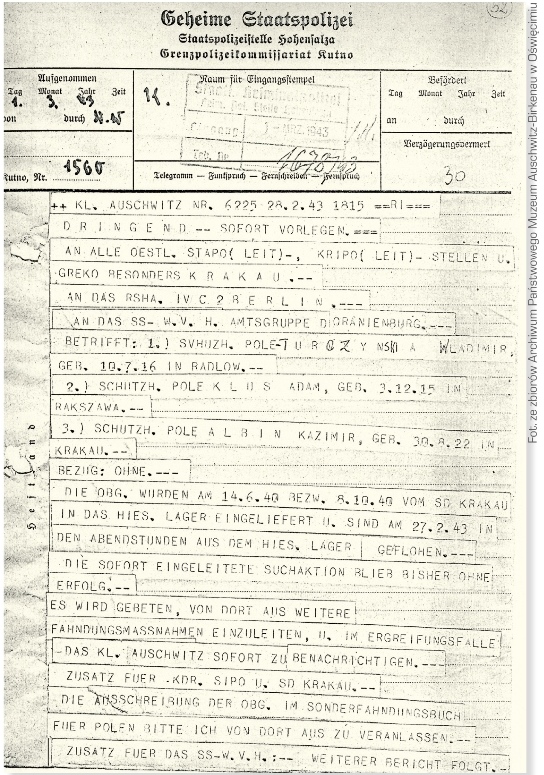 52
Geheime Staatspolizei
Staatspolizeistelle Hohensalza
Grenzpolizeikommissariat Kutno
Aufgenommen
Tag Monat Jahr Zeit
1. 3. 43
von durch
Kutno, Nr. 1560
Raum für Eingangsstempel
1943
1678/43
Telegramm — Funkspruch — Fernschreiben — Fernspruch
Befördert
Tag Monat Jahr Zeit
an durch
Verzögerungsvermerk
30
++ KL. AUSCHWITZ NR. 6225 28.2.43 1815 ==RI===
D R I N G E N D -- SOFORT VORLEGEN.===
AN ALLE OESTL. STAPO( LEIT)-, KRIPO( LEIT)- STELLEN U.
GREKO BESONDERS K R A K A U .--
AN DAS RSHA. IV C 2 B E R L I N .---
AN DAS SS- W.V. H. AMTSGRUPPE D ORANIENBURG.---
BETRIFFT: 1.) SVHUZH. POLE-T U R C Z Y NSKI A WLADIMIR,
GEB. 10.7.16 IN RADLOW.--
2.) SCHUTZH. POLE K L U S ADAM, GEB. 3.12.15 IN
RAKSZAWA.--
3.) SCHUTZH. POLE A L B I N KAZIMIR, GEB. 30.8.22 IN
KRAKAU.--
BEZUG: OHNE.---
DIE OBG. WURDEN AM 14.6.40 BEZW. 8.10.40 VOM SD KRAKAU
IN DAS HIES. LAGER EINGELIEFERT U. SIND AM 27.2.43 IN
DEN ABENDSTUNDEN AUS DEM HIES. LAGER GEFLOHEN.---
DIE SOFORT EINGELEITETE SUCHAKTION BLIEB BISHER OHNE
ERFOLG.--
ES WIRD GEBETEN, VON DORT AUS WEITERE
FAHNDUNGSMASSNAHMEN EINZULEITEN, U. IM ERGREIFUNGSFALLE
-DAS KL. AUSCHWITZ SOFORT ZU BENACHRICHTIGEN.---
ZUSATZ FUER .KDR. SIPO U. SD KRAKAU.--
DIE AUSSCHREIBUNG DER OBG. IM SONDERFAHNDUNGSBUCH
FUER POLEN BITTE ICH VON DORT AUS ZU VERANLASSEN.---
ZUSATZ FUER DAS SS-W.V.H.:-- WEITERER BERICHT FOLGT.-
Heftrand
Fot. ze zbiorów Archiwum Państwowego Muzeum Auschwitz-Birkenau w Oświęcimiu